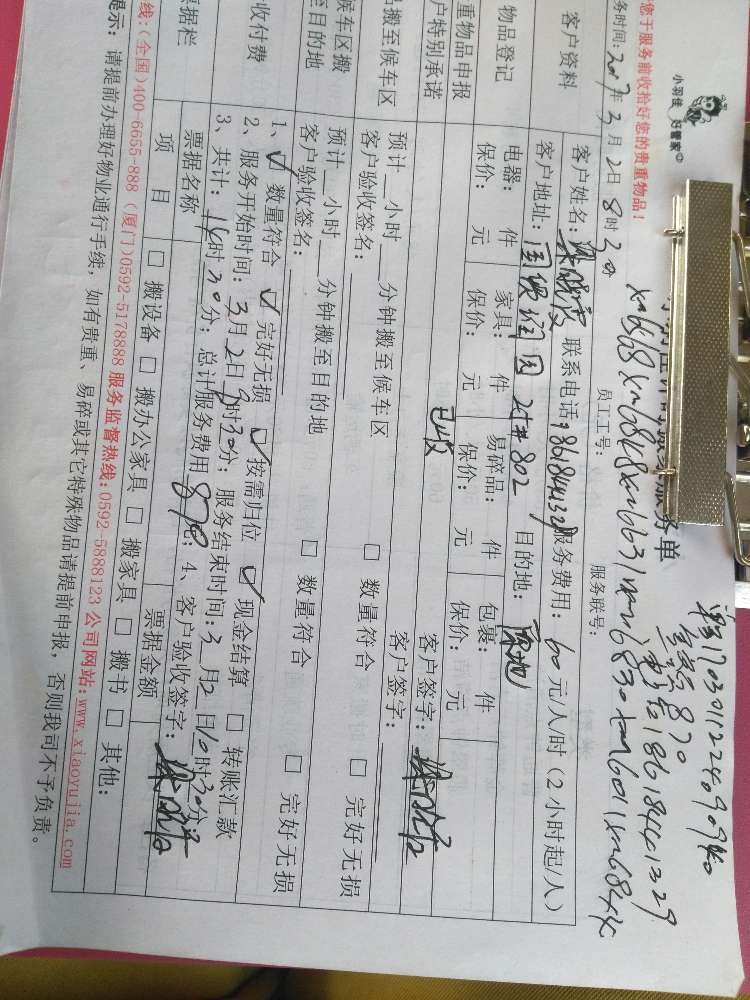 单号17030112240909410
金额870
電话18618441329
小羽佳 好管家
务单
xm6668 xm6818 xm6631 xm6830 xm6011 xm6844
您于服务前收拾好您的贵重物品!
员工工号:
服务联号:
务时间:2017年3月2日8时30
客户资料
客户姓名:
联系电话:18618441329
服务费用:60元/人/时(2小时起/人)
客户地址:
25#802
目的地:原地
物品登记
电器: 件 家具: 件 易碎品: 件 包裹: 件
保价: 元 保价: 元 保价: 元 保价: 元
重物品申报
户特别承诺
已收
客户签字:
搬至候车区
预计__小时__分钟搬至候车区
□ 数量符合 □ 完好无损
客户验收签名:
客户签字:
候车区搬
至目的地
预计__小时__分钟搬至目的地
□ 数量符合 □ 完好无损
客户验收签名:
收付费
1、☑ 数量符合 ☑ 完好无损 ☑ 按需归位 ☑ 现金结算 □ 转账汇款
2、服务开始时间:3月2日8时30分;服务结束时间:3月2日10时30分;
3、共计:14时30分;总计服务费用870;4、客户验收签字:
票据栏
票据名称
票据金额
项 目
□ 搬设备 □ 搬办公家具 □ 搬家具 □ 搬书 □ 其他:
线:(全国)400-6655-888 (厦门)0592-5178888 服务监督热线:0592-5888123 公司网站:www.xiaoyujia.com
提示:请提前办理好物业通行手续,如有贵重、易碎或其它特殊物品请提前申报,否则我司不予负责。